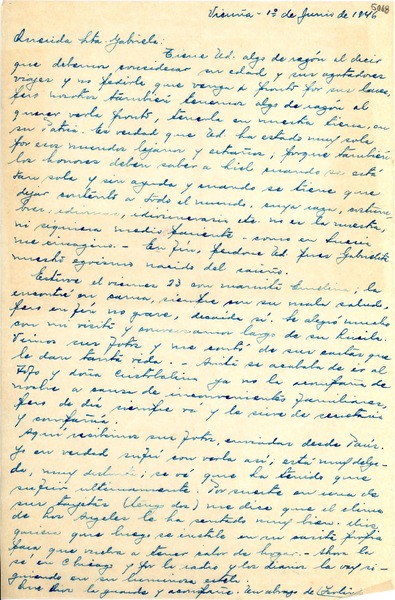 5068
Vicuña - 1º de Junio de 1946
Querida Sta Gabriela:
Tiene Ud. algo de razón al decir
que debemos considerar su edad y sus agotadores
viajes y no pedirle que venga pronto por sus lares,
pero nosotros también tenemos algo de razón al
querer verla pronto, tenerla en nuestra tierra, en
su Patria. Es verdad que Ud. ha estado muy sola
por esos mundos lejanos y extraños, porque también
los honores deben saber a hiel cuando se está
tan sola y sin ayuda y cuando se tiene que
dejar contento a todo el mundo, cuya raza, costum-
bres, idiomas, idiosincracia etc. no es la nuestra,
ni siquiera medio pariente - como en Suecia
me imagino. - En fin, perdone Ud. pues Gabrielita
nuestro egoísmo nacido del cariño.
Estuve el viernes 23 con mamita Emelina; la
encontré en cama, siempre con su mala salud.
pero en fin no grave, decaída sí. Se alegró mucho
con mi visita y conversamos largo de su huella.
Vimos sus fotos y me contó de sus cartas que
le dan tanta vida. - Anita se acababa de ir al
y doña Cristolalina ya no la acompaña de
noche a causa de inconvenientes familiares,
pero de día siempre va y le sirve de secretaria
y compañía.
Aquí recibimos sus fotos, enviadas desde París.
Yo en verdad sufrí con verla así, está muy delga-
da, muy se vé que ha tenido que
sufrir ultimamente. Por suerte en una de
sus tarjetas (tengo dos) me dice que el clima
de Los Angeles le ha sentado muy bien. Dios
quiera que luego se instale en su casita propia
para que vuelva a tener calor de hogar. - Ahora la
sé en Chicago y por la radio y los diarios la voy si-
guiendo en su luminosa estela.
Que Dios la guarde y acompañe. Un abrazo de